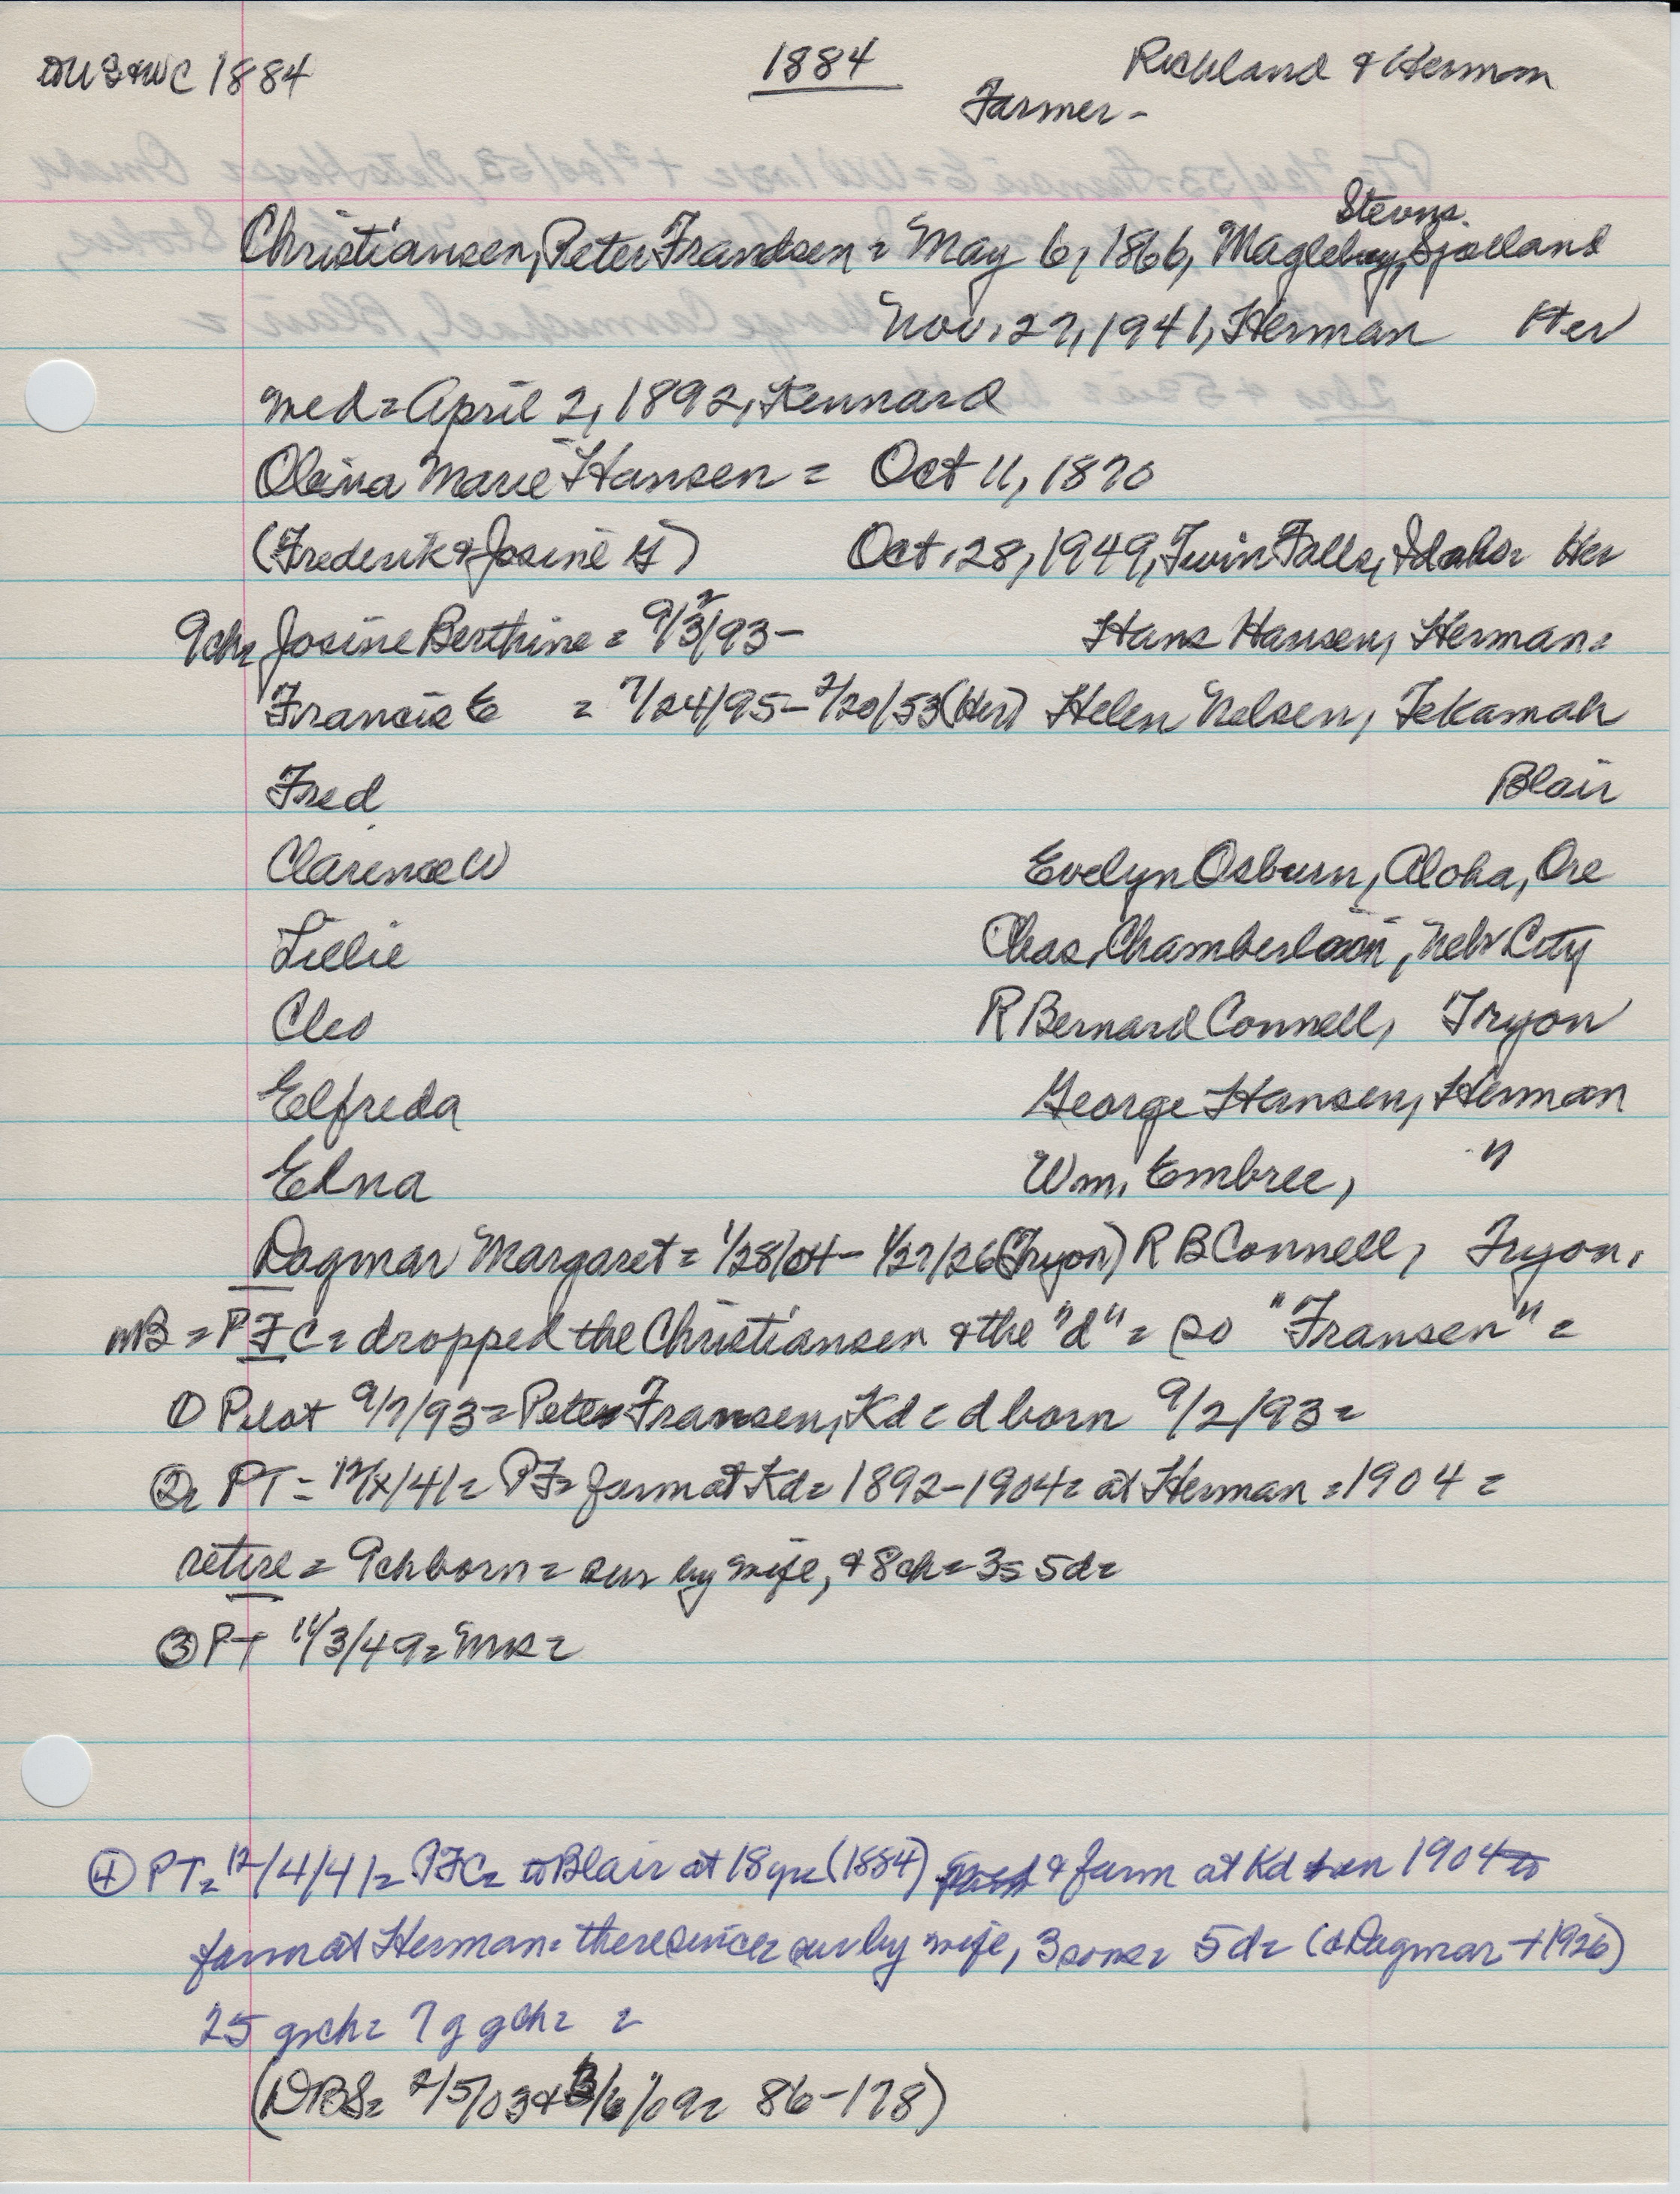 1884
Richland & Herman
Farmer -
Stevns.
Christiansen, Peter Frandsen = May 6, 1866, Magleby, Sjælland
Nov. 27, 1941, Herman Her
med = April 2, 1892, Kennard
Olina Marie Hansen = Oct 11, 1870
(Frederik & Josine G) Oct. 28, 1949, Twin Falls, Idaho = Her
9ch = Josine Berthine = 9/3/93 - Hans Hansen, Herman =
2
Francis E = 7/24/95 - 2/20/53 (Her) Helen Nelsen, Tekamah
Fred Blair
Clarence W Evelyn Osburn, Aloha, Ore
Lillie Chas. Chamberlain, Nebr City
Cleo R Bernard Connell, Tryon
Elfreda George Hansen, Herman
Edna Wm. Embree, "
Dagmar Margaret = 1/28/04 - 1/27/26 (Tryon) R B Connell, Tryon.
NB = PFC = dropped the Christiansen & the "d" = so "Fransen" =
① Pilot 9/7/93 = Peter Fransen, Kd = d born 9/2/93 =
② PT = 12/x/41 = PF = farm at Kd = 1892-1904 = at Herman = 1904 =
retire = 9ch born = sur by wife, & 8ch = 3s 5d =
③ PT 11/3/49 = Mrs =
④ PT = 12/4/41 = PFC = to Blair at 18 yrs (1884) & farm at Kd in 1904 to
farm at Herman = there since = sur by wife, 3 sons = 5d = (d Dagmar +1926)
25 grch = 7 g gch = =
(DBS = 2/5/03 & 3/6/09 = 86-178)